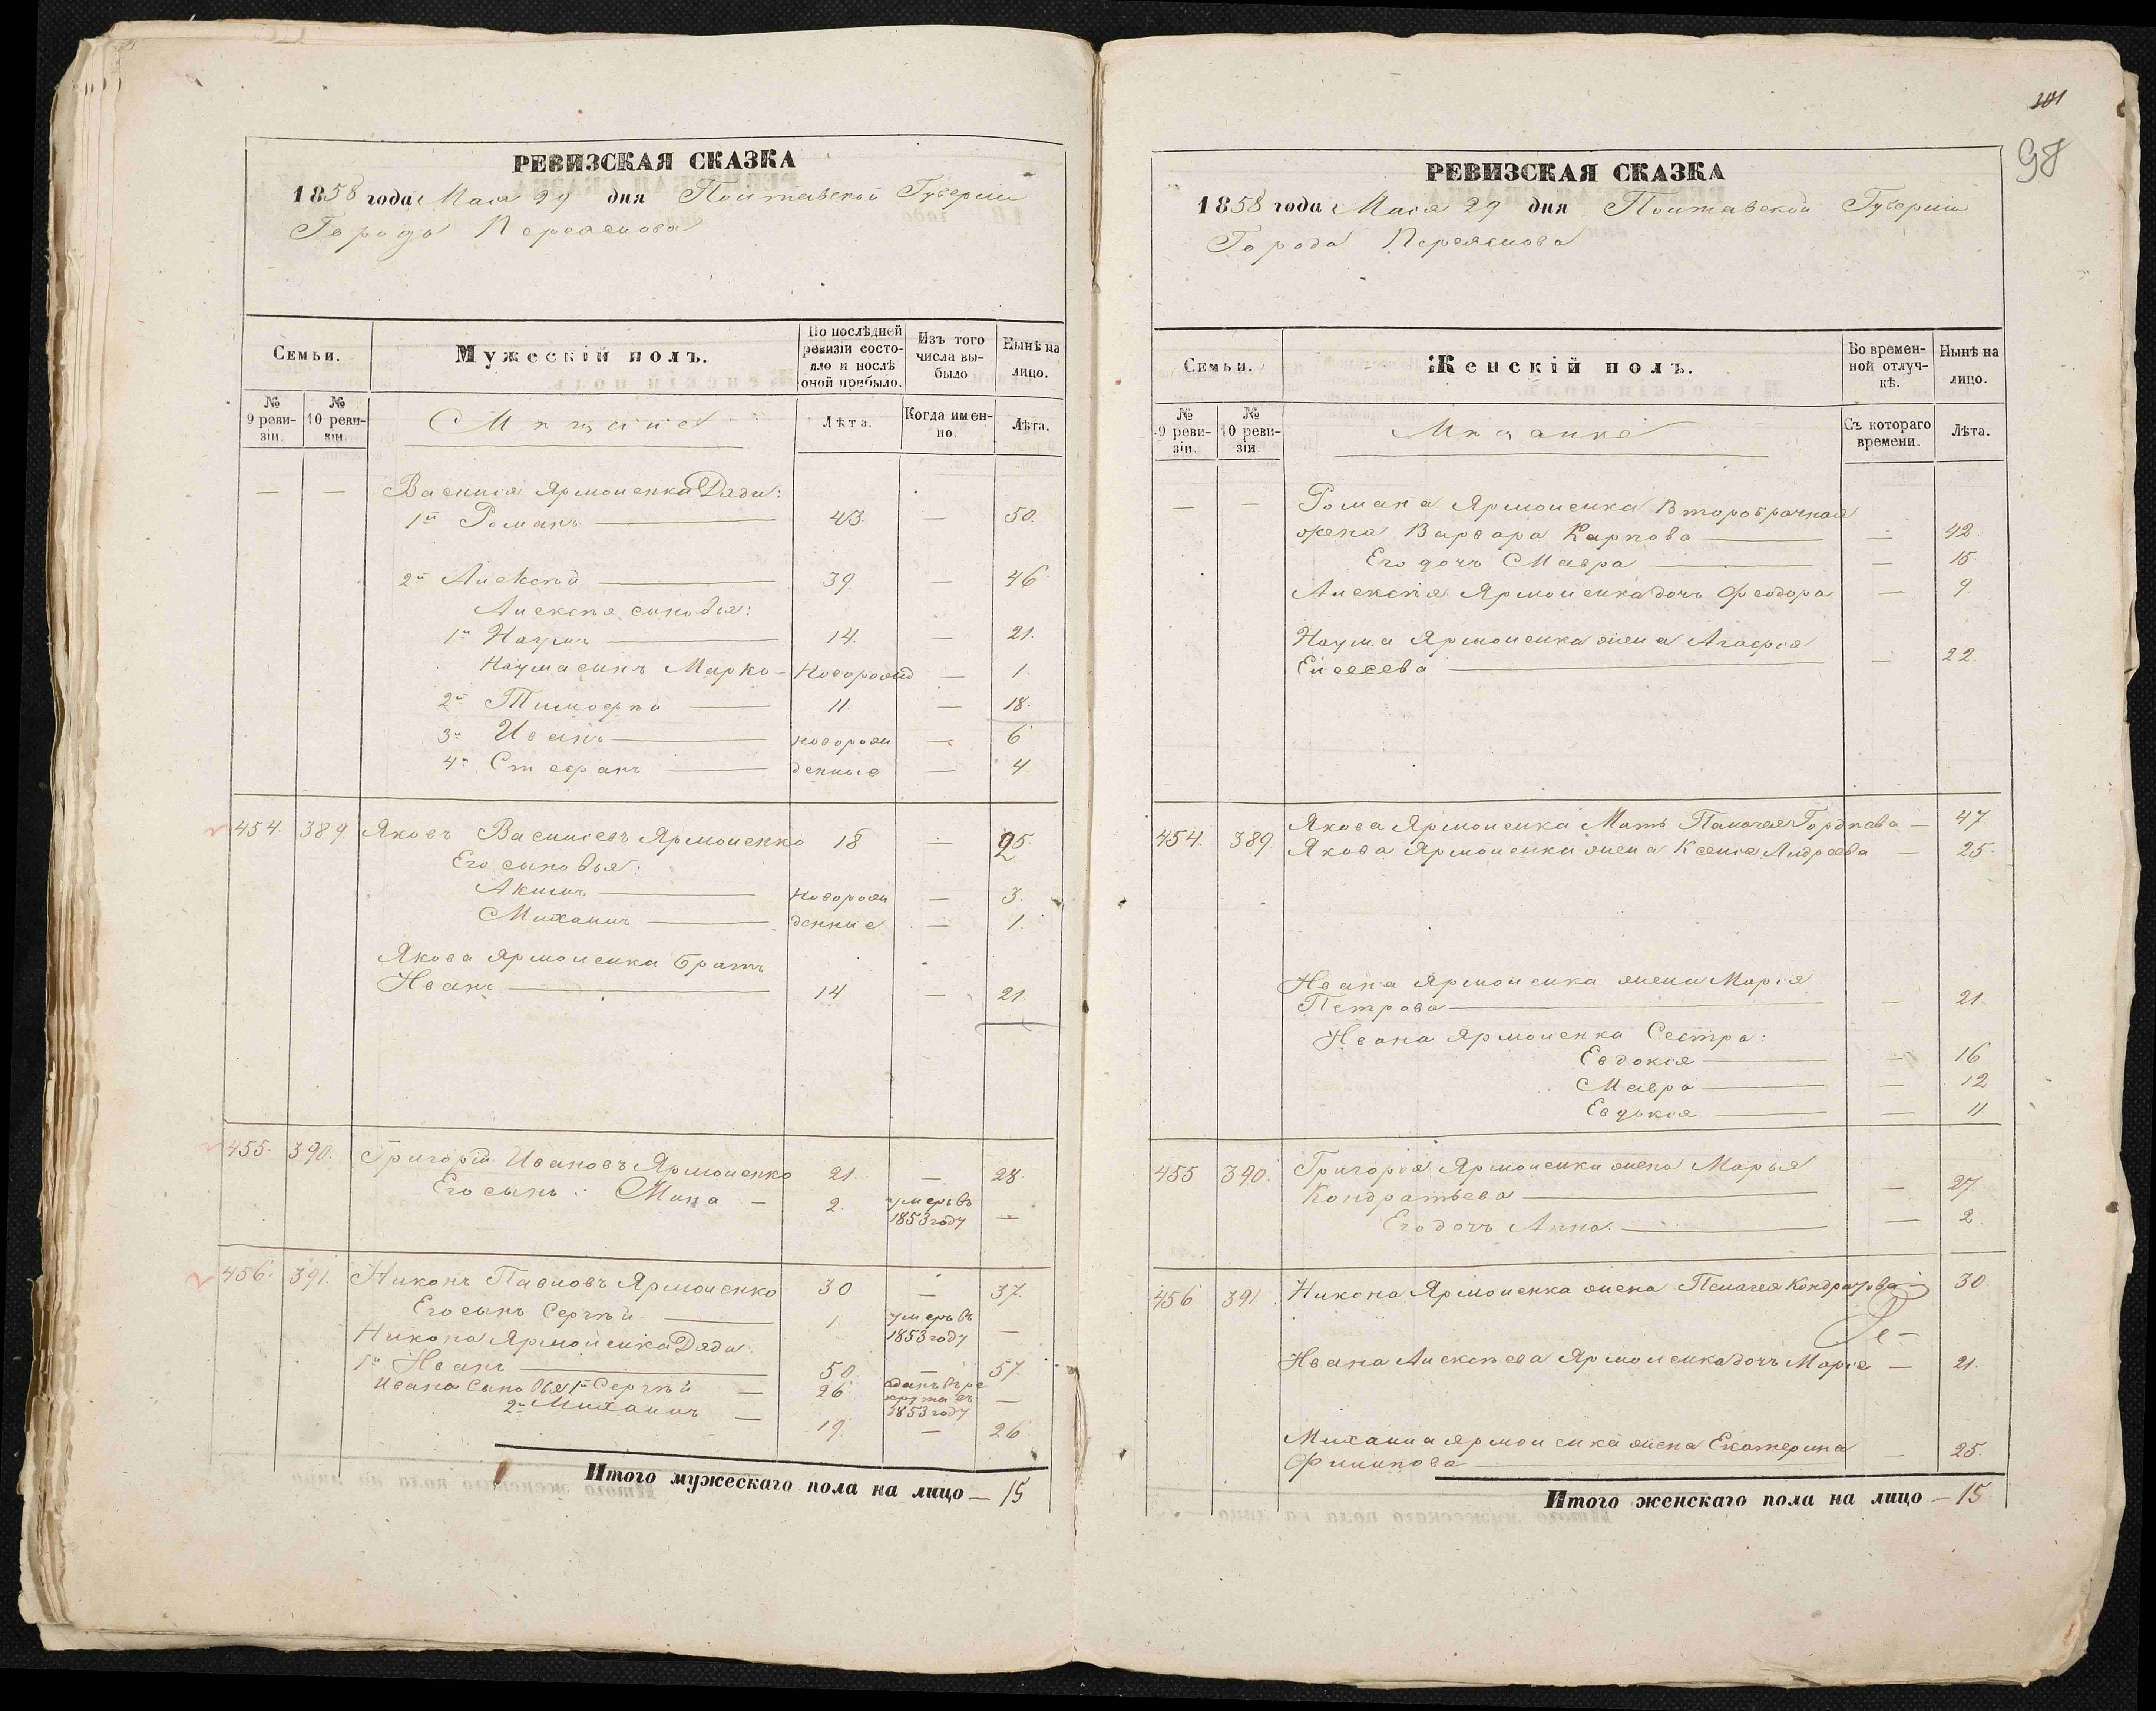 РЕВИЗСКАЯ СКАЗКА
1858 года Мая 29 дня Полтавской Губерніи
Города Переяслова
Семьи.
Мужескій полъ.
По послѣдней ревизіи состояло и послѣ оной прибыло.
Изъ того числа выбыло
Нынѣ на лицо.
№ 9 ревизіи.
№ 10 ревизіи.
Мѣщане
Лѣта.
Когда именно.
Лѣта.
— — Василія Ярмоленка Дяди:
1й Романъ — 43. — 50.
2й Алексѣй — 39. — 46.
Алексѣя сыновья:
1й Наумъ — 14. — 21.
Наума сынъ Марко — Новорожд — 1.
2й Тимофѣй — 11 — 18.
3й Иванъ — новорож — 6
4й Стефанъ — денные — 4.
454. 389. Яковъ Васильевъ Ярмоленко 18 — 25.
Его сыновья:
Акимъ — новорож — 3.
Михаилъ — денные — 1.
Якова Ярмоленка Братъ
Иванъ — 14 — 21.
455. 390. Григорій Ивановъ Ярмоленко 21. — 28.
Его сынъ: Мина — 2. умеръ въ 1853 году —
456. 391. Никонъ Павловъ Ярмоленко 30 — 37.
Его сынъ Сергѣй — 1. умеръ въ 1853 году —
Никона Ярмоленка Дяди:
1й Иванъ — 50. — 57.
Ивана сыновья 1й Сергѣй — 26. сданъ въ рекруты въ 1853 году —
2й Михаилъ — 19. — 26
Итого мужескаго пола на лицо — 15
101
98
РЕВИЗСКАЯ СКАЗКА
1858 года Мая 29 дня Полтавской Губерніи
Города Переяслова
Семьи.
Женскій полъ.
Во временной отлучкѣ.
Нынѣ на лицо.
№ 9 ревизіи.
№ 10 ревизіи.
Мѣщанке
Съ котораго времени.
Лѣта.
— — Романа Ярмоленка Второбрачная
жена Варвара Карпова — — 42.
Его дочь Мавра — — 15.
Алексѣя Ярмоленка дочь Феодора — 9.
Наума Ярмоленка жена Агафія
Елесеева — — 22.
454. 389. Якова Ярмоленка Мать Палагея Гордѣева — 47.
Якова Ярмоленка жена Ксенія Андреева — 25.
Ивана Ярмоленка жена Марія
Петрова — — 21.
Ивана Ярмоленка Сестра:
Евдокія — — 16
Мавра — — 12
Евдокія — — 11
455 390. Григорія Ярмоленка жена Марья
Кондратьева — — 27.
Его дочь Анна — — 2.
456 391. Никона Ярмоленка жена Пелагея Кондратова 30.
Ивана Алексѣева Ярмоленка дочь Марія — 21.
Михаила Ярмоленка жена Екатерина
Филипова — — 25.
Итого женскаго пола на лицо — 15